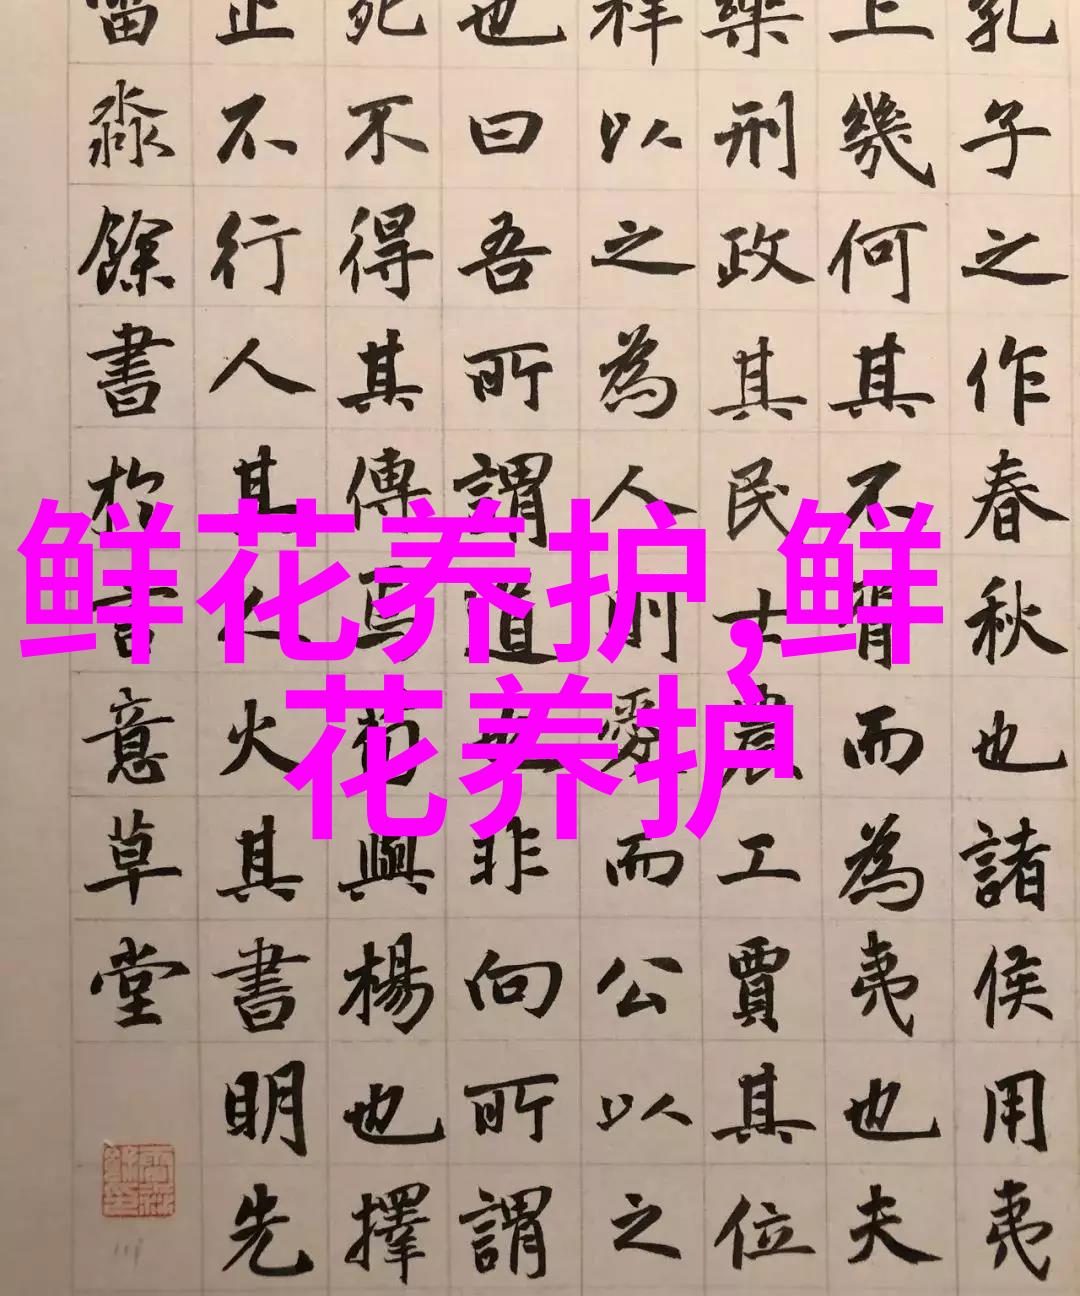 鲜花养护,鲜
花养护
孔子之作春秋也諸侯用夷
上幾何其不胥而為夷也夫
樂刑政其民士農工賈其位
祥以之為人則愛而公以之
也曰吾所謂道也非向所謂
死不得其傳焉荀與楊也擇
止不行人其人火其書明先
淼餘書於意草堂